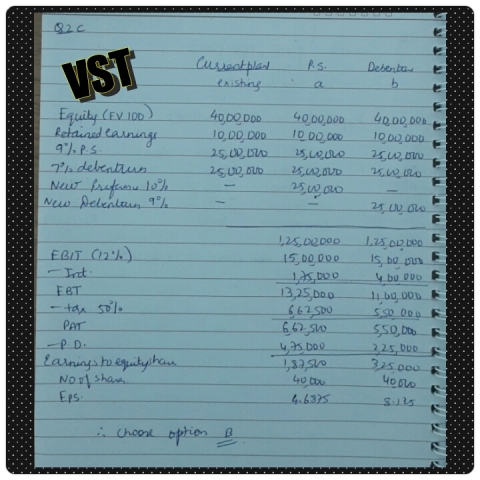 Q2C
VST
Current plan P.S. Debenture
existing a b
Equity (FV 100) 40,00,000 40,00,000 40,00,000
Retained earnings 10,00,000 10,00,000 10,00,000
9% P.S. 25,00,000 25,00,000 25,00,000
7% debentures 25,00,000 25,00,000 25,00,000
New Preference 10% — 25,00,000 —
New Debentures 9% — — 25,00,000
1,25,00000 1,25,00000
EBIT (12%) 15,00,000 15,00,000
- Int. 1,75,000 4,00,000
EBT 13,25,000 11,00,000
- tax 50% 6,62,500 5,50,000
PAT 6,62,500 5,50,000
- P.D. 4,75,000 2,25,000
Earnings to equity share 1,87,500 3,25,000
No of share 40,000 40,000
Eps. 4.6875 8.125
∴ choose option B